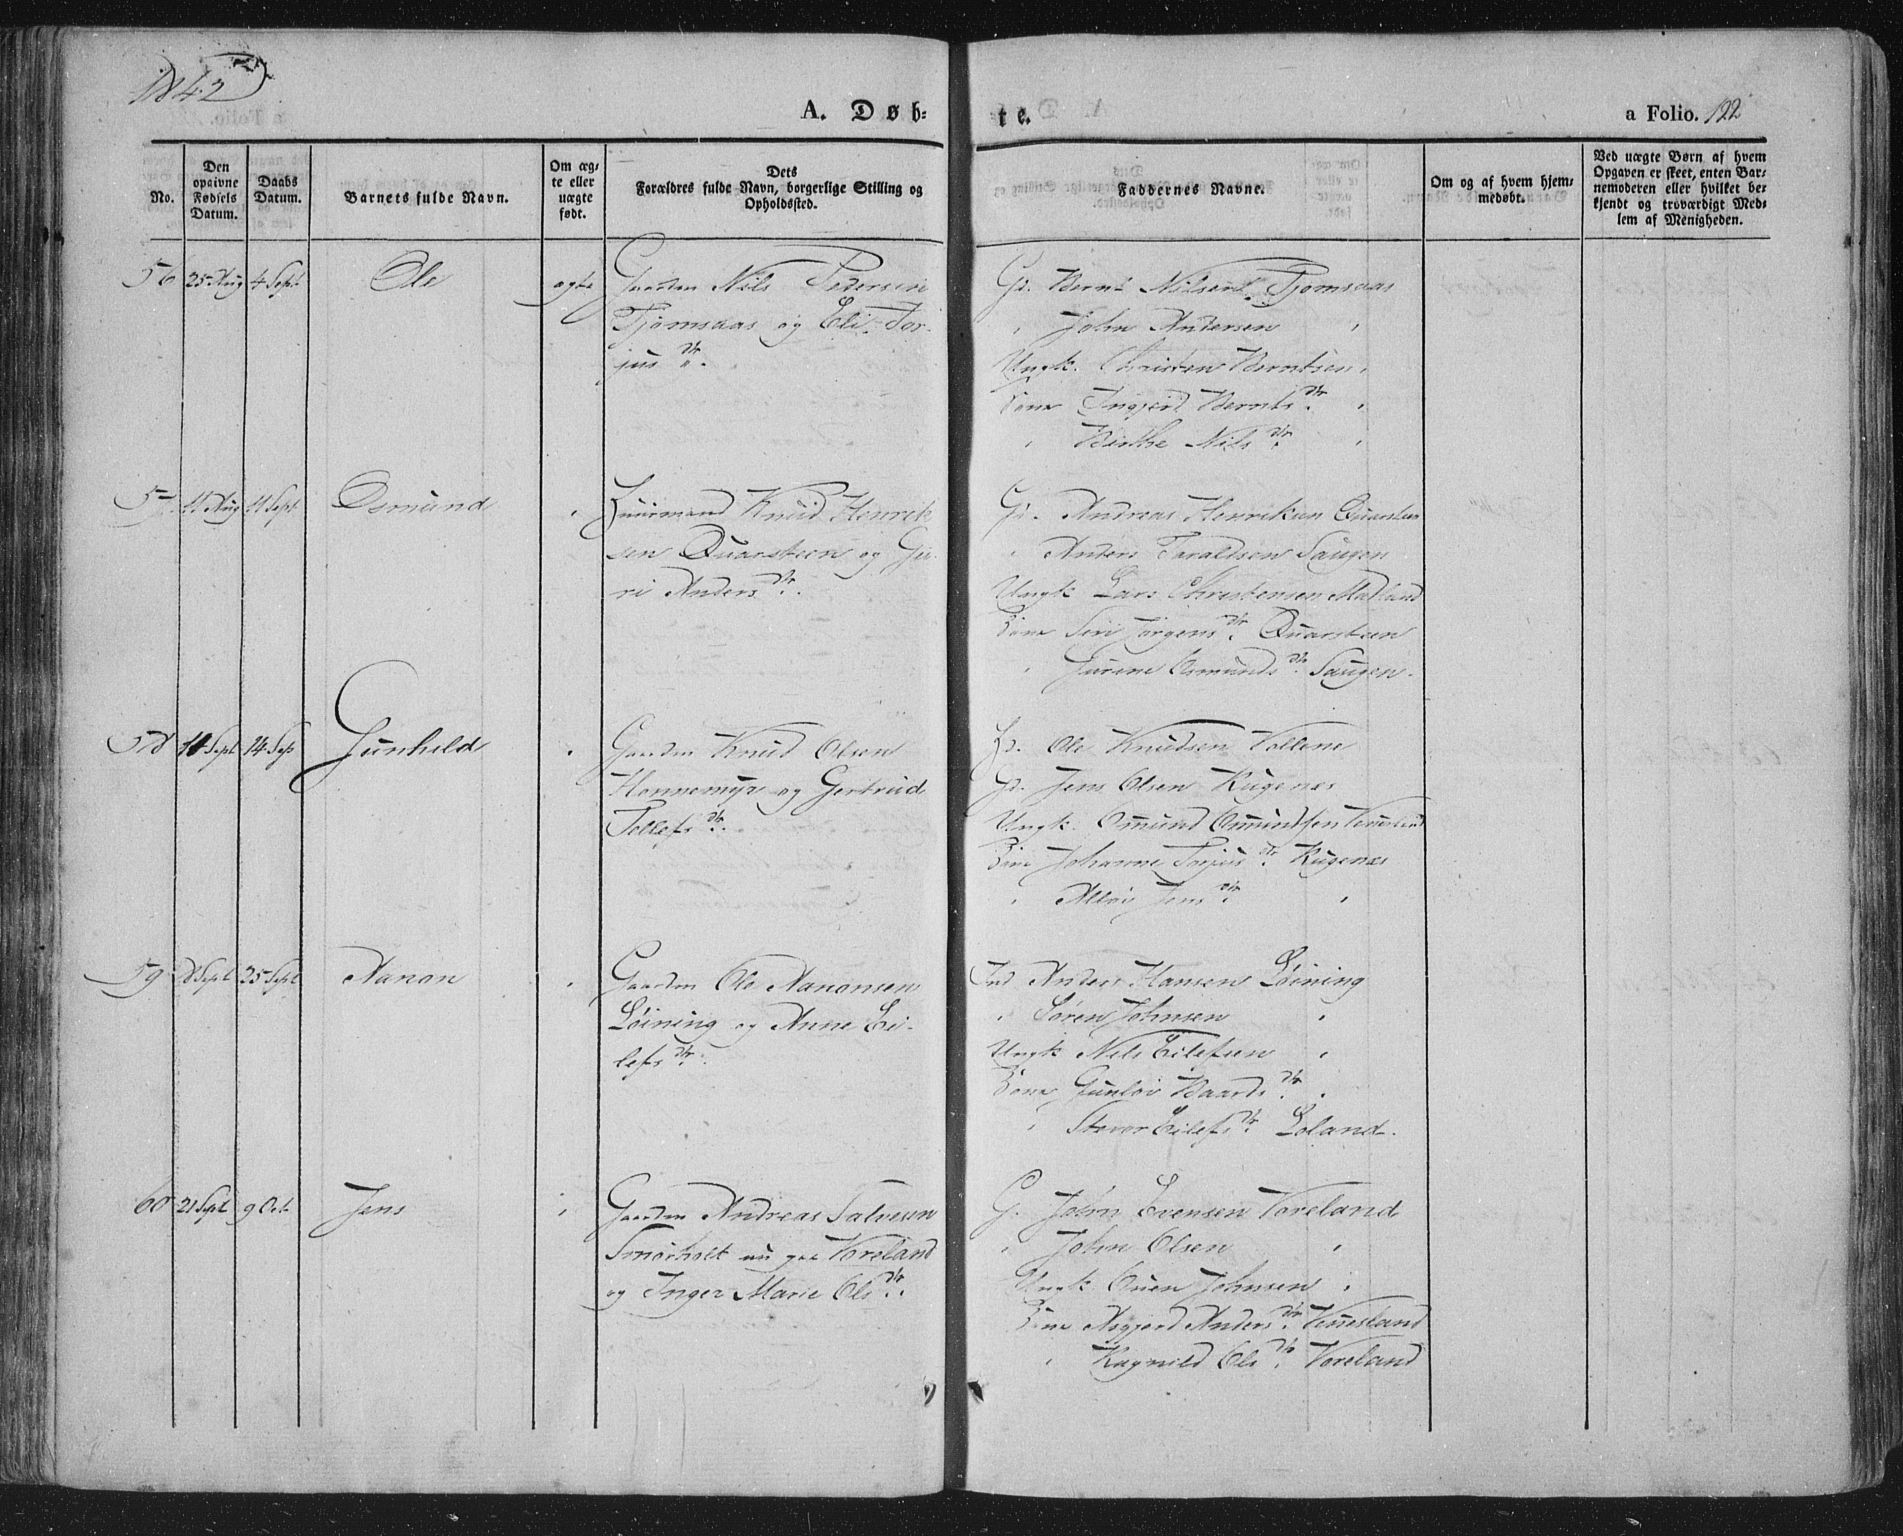 1842
A. Døb-
te.
a Folio. 122
No.
Den opaivne Fødsels Datum.
Daabs Datum.
Barnets fulde Navn.
Om ægte eller uægte født.
Dets Forældres fulde Navn, borgerlige Stilling og Opholdssted.
Faddernes Navne.
Om og af hvem hjemmedøbt.
Ved uægte Børn af hvem Opgaven er skeet, enten Barnemoderen eller hvilket bekjendt og troværdigt Medlem af Menigheden.
56 25 Aug 4 Sept Ole ægte Gaardm Nils Pedersen
Tjomsaas og Eli Tor-
jus dtr.
Gd. Bernt Nilsen Tjomsaas
" John Andersen "
Ungk. Christen Berntsen "
Kone Ingjerd Bernts dtr. "
" Birthe Nils dtr. "
57 11 Aug 11 Sept Osmund " Huusmand Knud Henrik
sen Quarsteen og Gu-
ri Anders dtr.
Gd. Andreas Henriksen Quarsteen
" Anders Taraldsen Saugen
Ungk Lars Christensen
Kone Siri Jørgens dtr. Quarsteen
" Jurine Osmunds dtr. Saugen.
58 11 Sept 14 Sept Gunhild " Gaardm Knud Olsen
Honnemyr og Gertrud
Tellefs dtr.
Ole Knudsen
Gd. Jens Olsen Rugenes
Ungk. Omund Omundsen
Johanne Torjus dtr. Rugenes
" Jens dtr. "
59 8 Sept 25 Sept Aanon " Gaardm Ole Aanonsen
Løining og Anne Ei-
lefs dtr.
Ind Anders Hansen Løining
" Søren Johnsen "
Ungk Nils Eilefsen "
Kone Gunlov Baards dtr. "
" Eilefs dtr. Loland.
60 21 Sept 9 Oct. Jens " Gaardm Andreas Salvesen
Smørholt nu paa Voreland
og Inger Marie Ols dtr.
G. John Evensen Voreland
" John Olsen "
Ungk Even Johnsen "
Kone Asgjerd Anders dtr. Vennesland
" Ragnild Ols dtr. Voreland